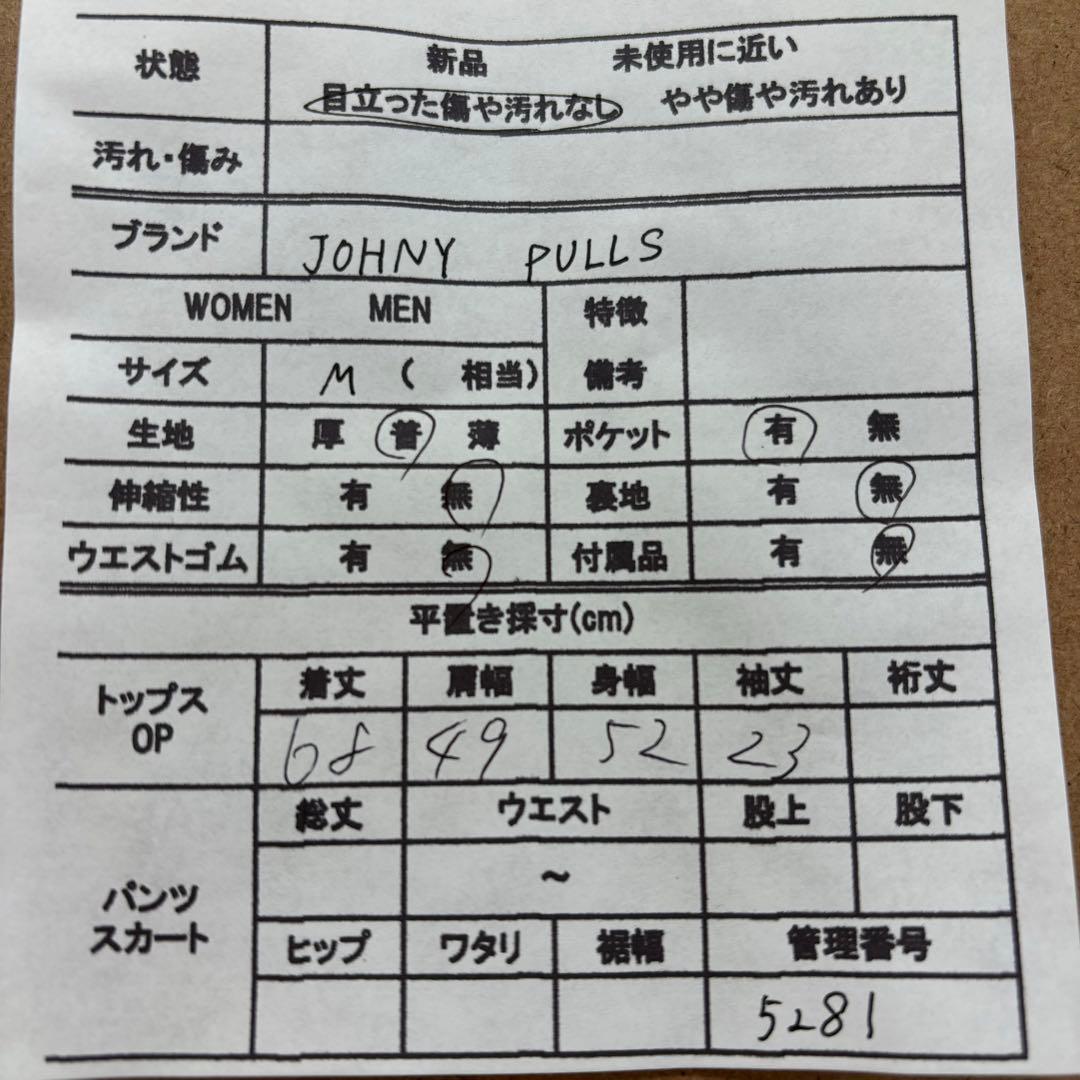 状態 新品 未使用に近い
目立った傷や汚れなし やや傷や汚れあり
汚れ・傷み
ブランド JOHNY PULLS
WOMEN MEN 特徴
サイズ M ( 相当) 備考
生地 厚 普 薄 ポケット 有 無
伸縮性 有 無 裏地 有 無
ウエストゴム 有 無 付属品 有 無
平置き採寸(cm)
トップス OP 着丈 肩幅 身幅 袖丈 裄丈
68 49 52 23
パンツ スカート 総丈 ウエスト 股上 股下
~
ヒップ ワタリ 裾幅 管理番号
5281